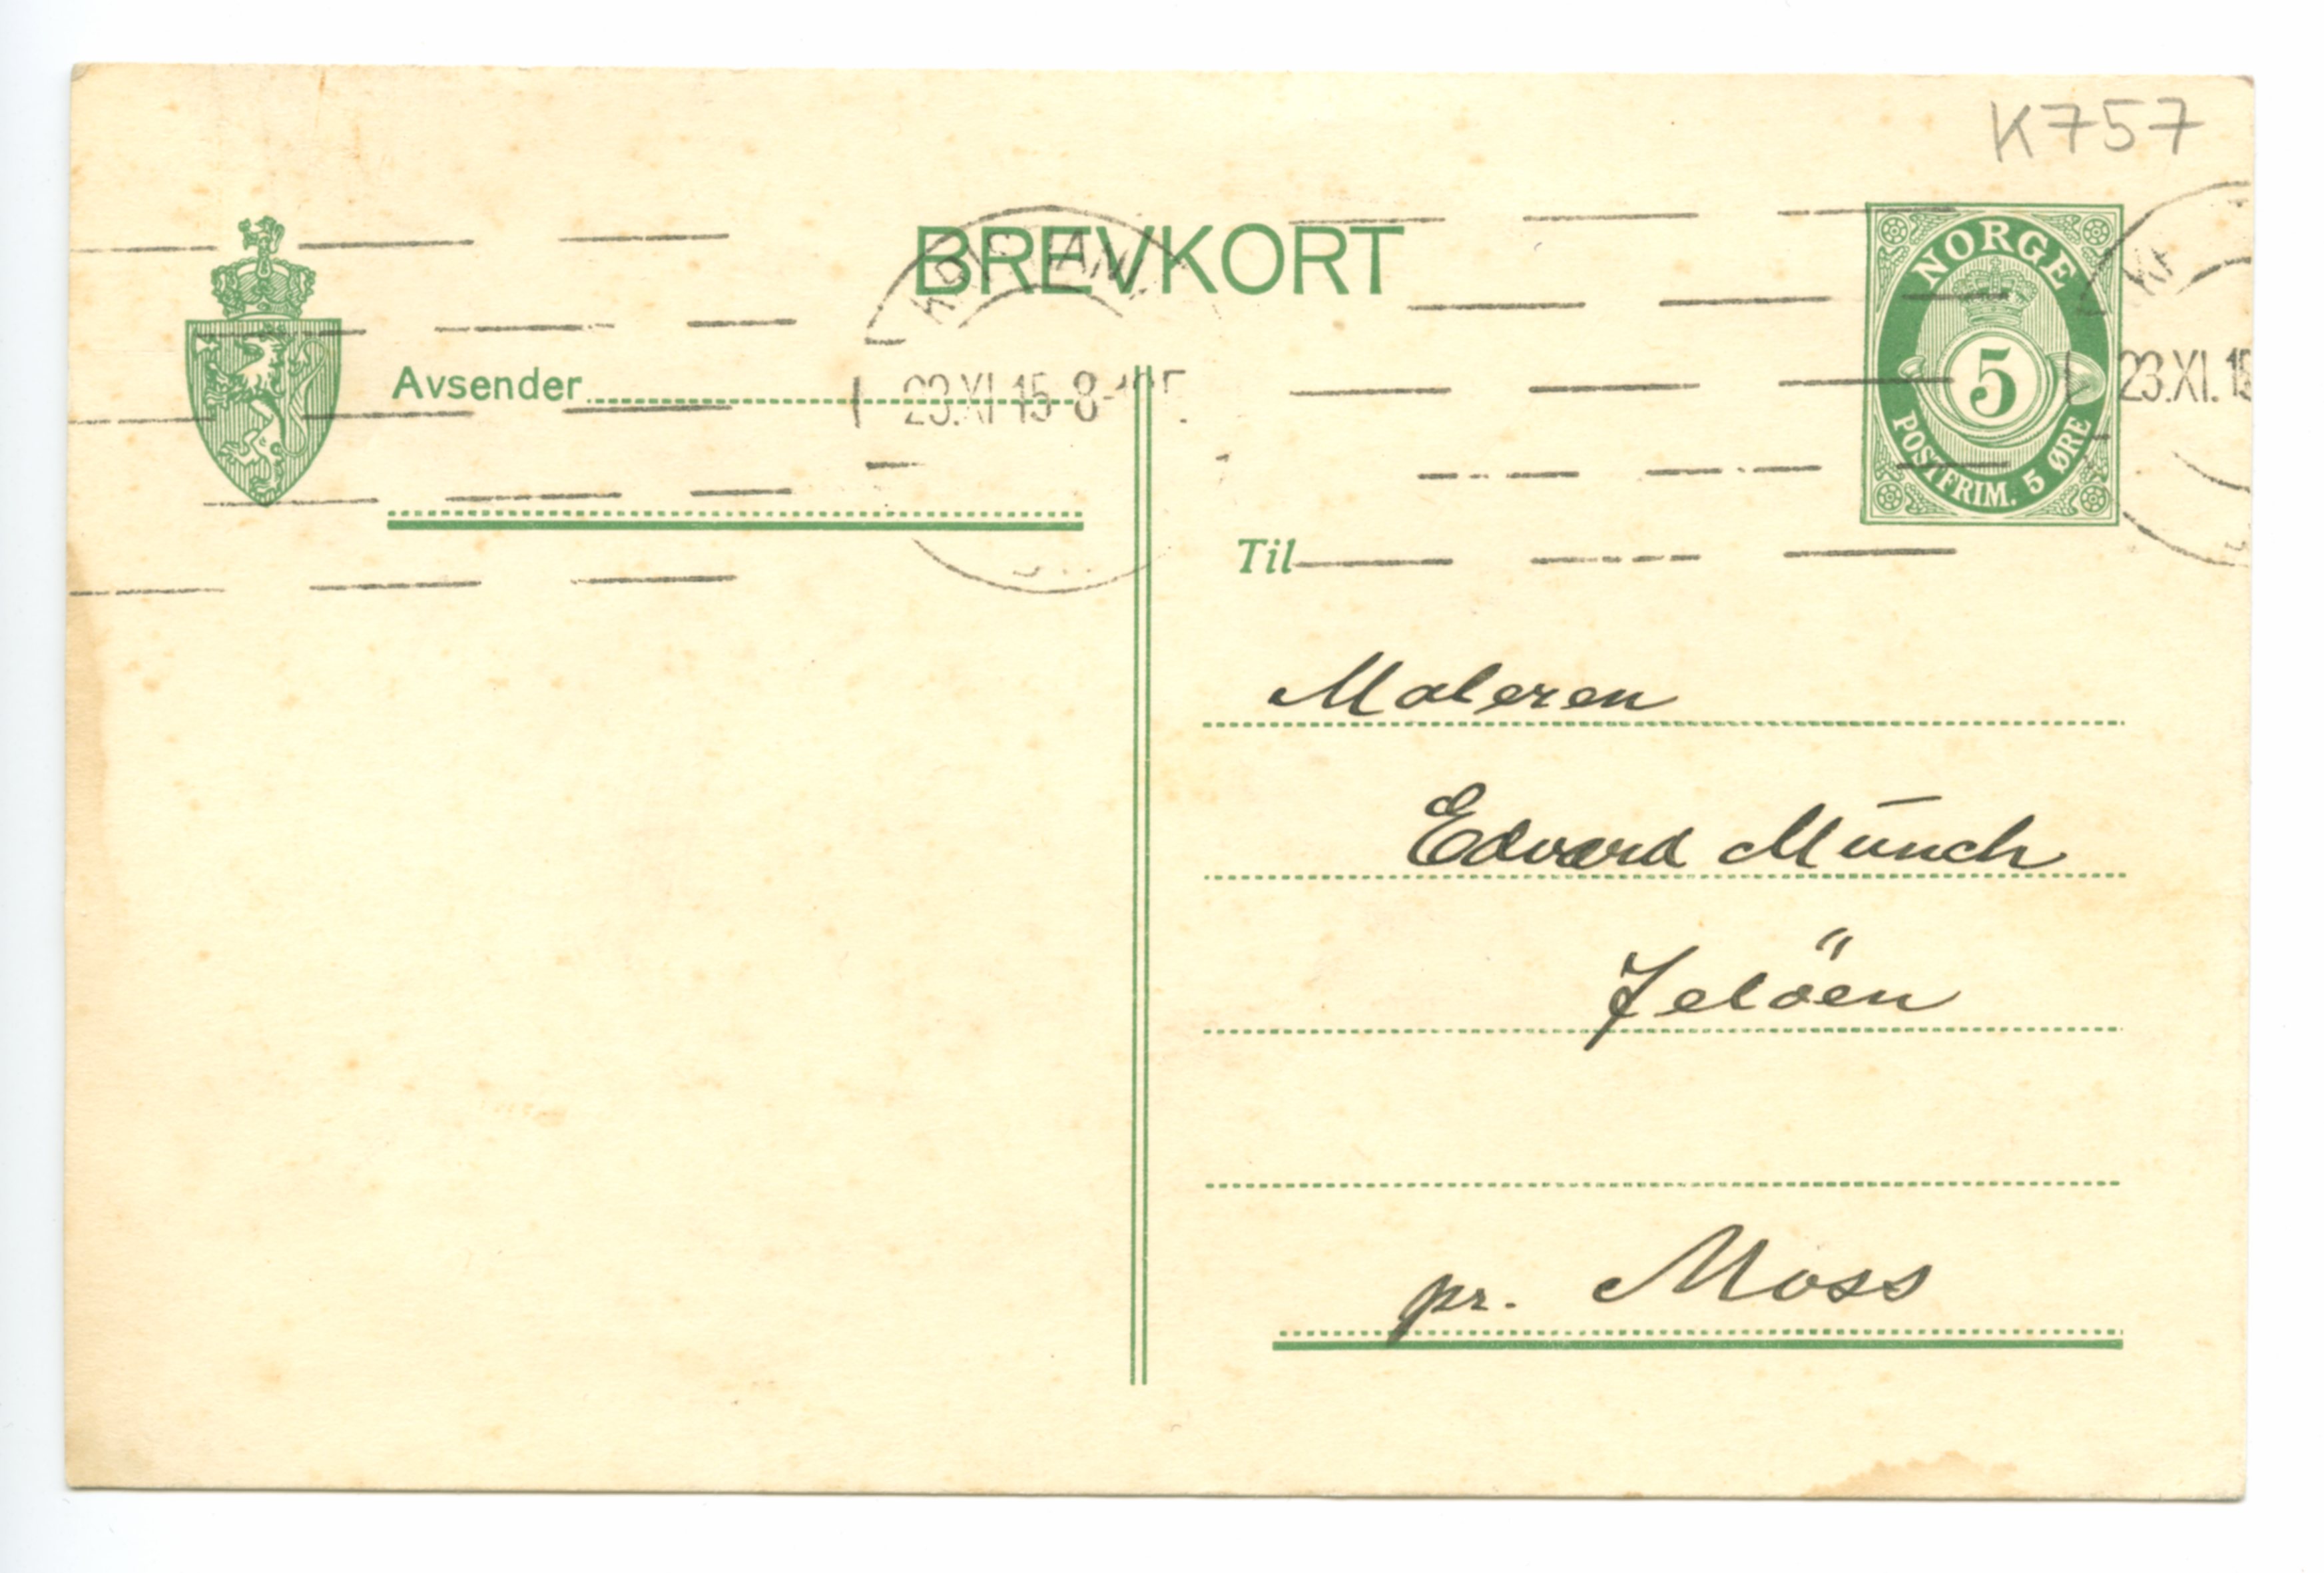 K757
BREVKORT
NORGE
5
POSTFRIM. 5 ØRE
Avsender
23.XI.15 8-
23.XI.15
Til
Maleren
Edvard Munch
Jelöen
pr. Moss